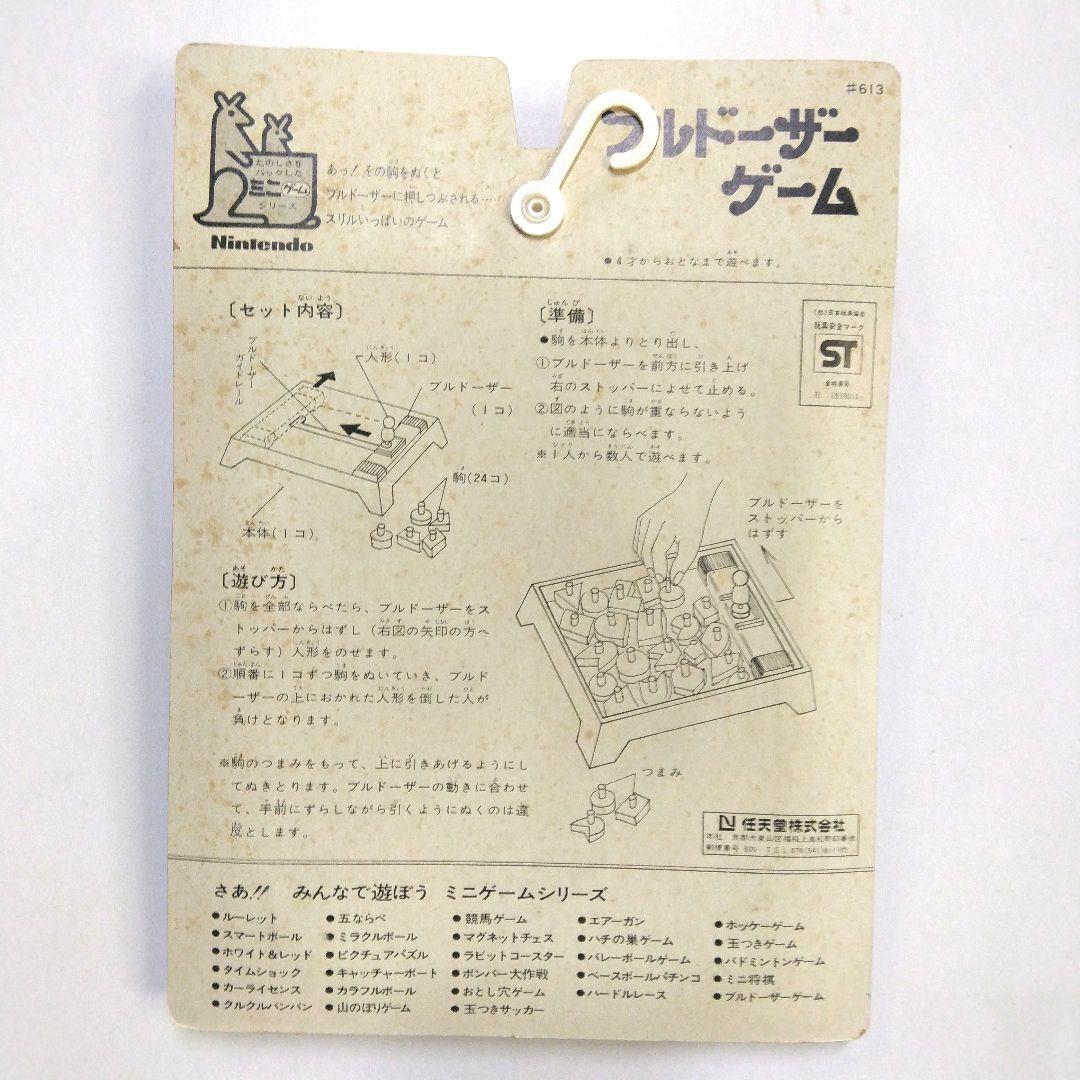 #613
ブルドーザー
ゲーム
たのしさを
パックした
ミニゲーム
シリーズ
Nintendo
あっ！その駒をぬくと
ブルドーザーに押しつぶされる……！
スリルいっぱいのゲーム
●4才からおとなまで遊べます。
〔セット内容〕
ブルドーザー
ガイドレール
人形(1コ)
ブルドーザー
(1コ)
駒(24コ)
本体(1コ)
〔準備〕
●駒を本体よりとり出し、
①ブルドーザーを前方に引き上げ
右のストッパーによせて止める。
②図のように駒が重ならないよう
に適当にならべます。
※1人から数人で遊べます。
(社)日本玩具協会
玩具安全マーク
ST
ブルドーザーを
ストッパーから
はずす
〔遊び方〕
①駒を全部ならべたら、ブルドーザーをス
トッパーからはずし（右図の矢印の方へ
ずらす）人形をのせます。
②順番に1コずつ駒をぬいていき、ブルド
ーザーの上におかれた人形を倒した人が
負けとなります。
※駒のつまみをもって、上に引きあげるようにし
てぬきとります。ブルドーザーの動きに合わせ
て、手前にずらしながら引くようにぬくのは違
反とします。
つまみ
N 任天堂株式会社
本社 京都市東山区福稲上高松町60番地
郵便番号 605
さあ!! みんなで遊ぼう ミニゲームシリーズ
●ルーレット
●スマートボール
●ホワイト&レッド
●タイムショック
●カーライセンス
●クルクルバンバン
●五ならべ
●ミラクルボール
●ピクチュアパズル
●キャッチャーボート
●カラフルボール
●山のぼりゲーム
●競馬ゲーム
●マグネットチェス
●ラビットコースター
●ボンバー大作戦
●おとし穴ゲーム
●玉つきサッカー
●エアーガン
●ハチの巣ゲーム
●バレーボールゲーム
●ベースボールパチンコ
●ハードルレース
●ホッケーゲーム
●玉つきゲーム
●バドミントンゲーム
●ミニ将棋
●ブルドーザーゲーム